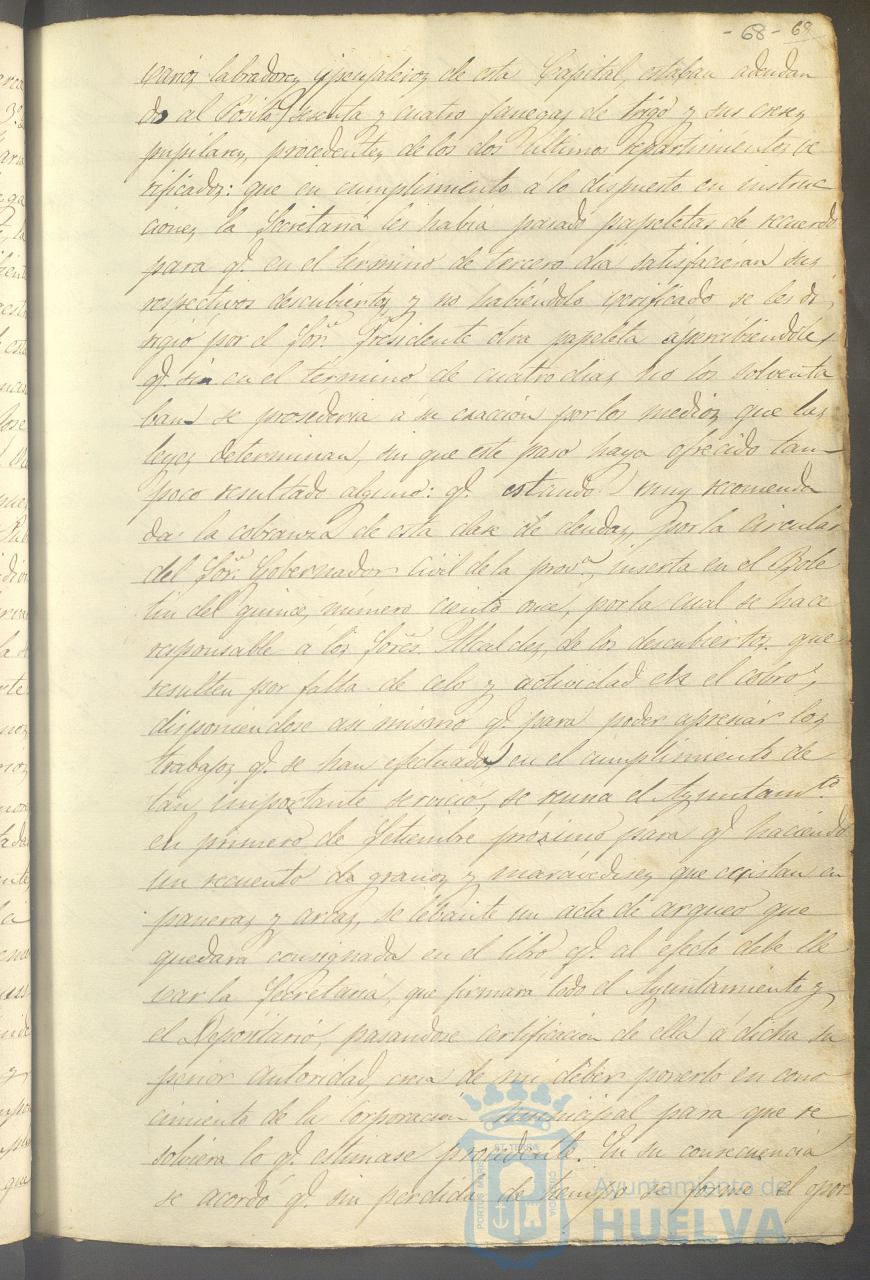 -68- 68
varios labradores y pegujaleros de esta Capital, estaban adeudan
do al Pósito sesenta y cuatro fanegas de trigo y sus creses
pupilares, procedentes de los dos últimos repartimientos ve
rificados: que en cumplimiento á lo dispuesto en instruc
ciones la Secretaria les habia pasado papeletas de recuerdo
para q.e en el término de tercero dia satisfacieran sus
respectivos descubiertos, y no habiéndolo verificado se les di
rigió por el Sor. Presidente otra papeleta apercibiendoles,
q.e sin en el término de cuatro dias no los solventa
ban se prosederia á su exacción por los medios que las
leyes determinan, sin que este paso haya ofrecido tam-
poco resultado alguno: q.e estando muy recomenda
da la cobranza de esta clase de deudas, por la Circular
del Sor. Gobernador Civil de la prov.a, inserta en el Bole
tin del quince, número ciento once, por la cual se hace
responsable a los Sores. Alcaldes, de los descubiertos que
resulten por falta de celo y actividad en el cobro,
disponiendose asi mismo q.e para poder apreciar los
trabajos q.e se han efectuados en el cumplimiento de
tan importante servicio, se reuna el Ayuntam.to
en primero de Setiembre próximo para q.e haciendo
un recuento de granos y maravedises que existan en
paneras y arcas, se lebante un acta de arqueo que
quedará consignada en el libro q.e al efecto debe lle
var la Secretaria, que firmará todo el Ayuntamiento y
el Depositario, pasandose certificación de ella á dicha su
perior autoridad, creia de mi deber ponerlo en cono
cimiento de la Corporación Municipal para que re
solviera lo q.e estimase procedente. En su consecuencia
se acordó q.e sin perdida de tiempo se forme el opor
Ayuntamiento de
HUELVA